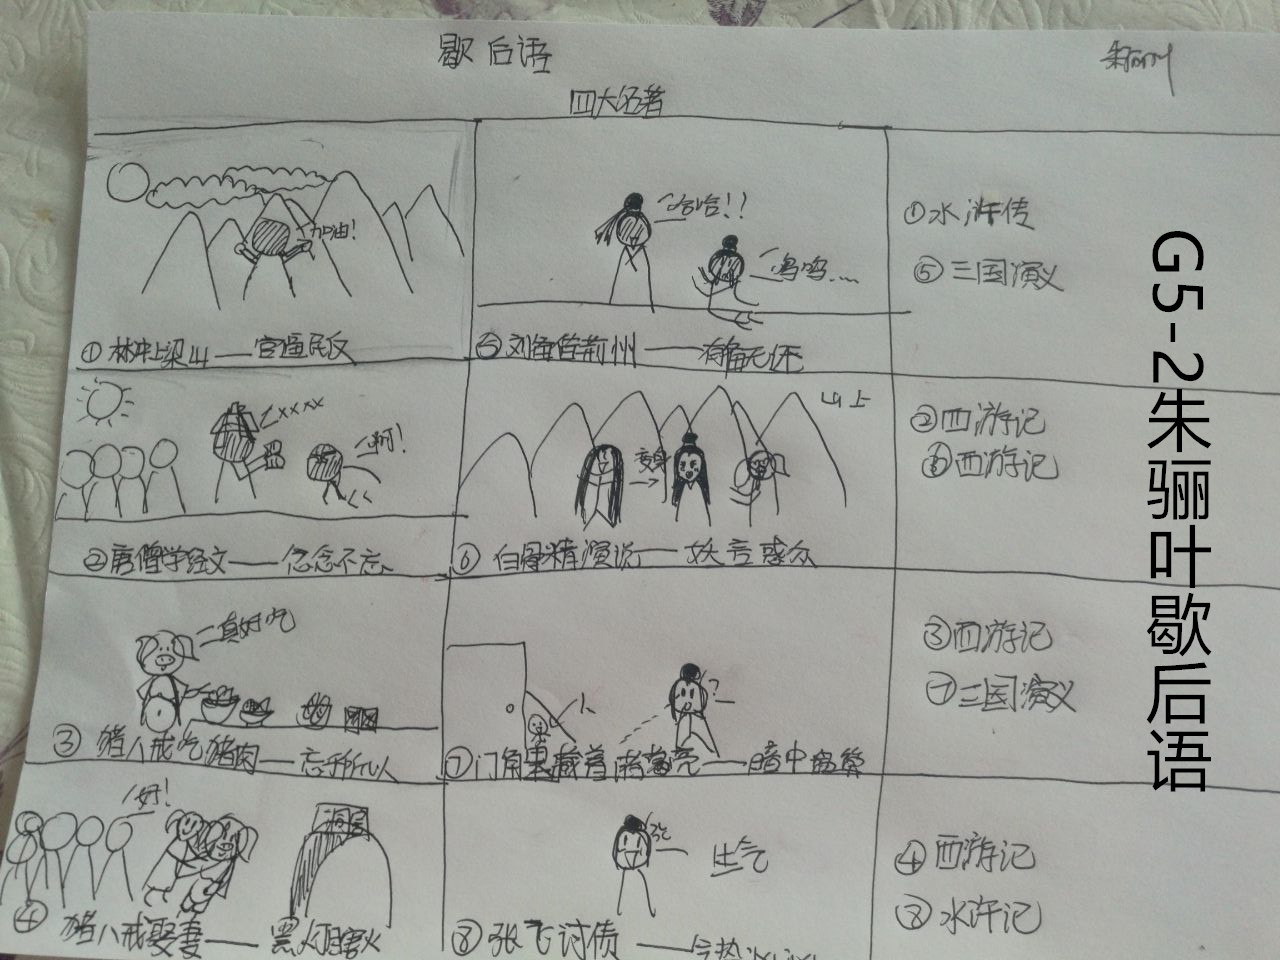 歇后语
四大名著
加油!
①林冲上梁山——官逼民反
哈哈!!
呜呜...
⑤刘备借荆州——有借无还
①水浒传
⑤三国演义
xxxx
啊!
②唐僧学经文——念念不忘
山上
变身
⑥白骨精演说——妖言惑众
②西游记
⑥西游记
真好吃
③猪八戒吃猪肉——忘乎所以
?
⑦门角里藏着诸葛亮——暗中盘算
③西游记
⑦三国演义
好!
洞房
④猪八戒娶妻——黑灯瞎火
出气
⑧张飞讨债——
④西游记
⑧水浒记
G5-2朱骊叶歇后语